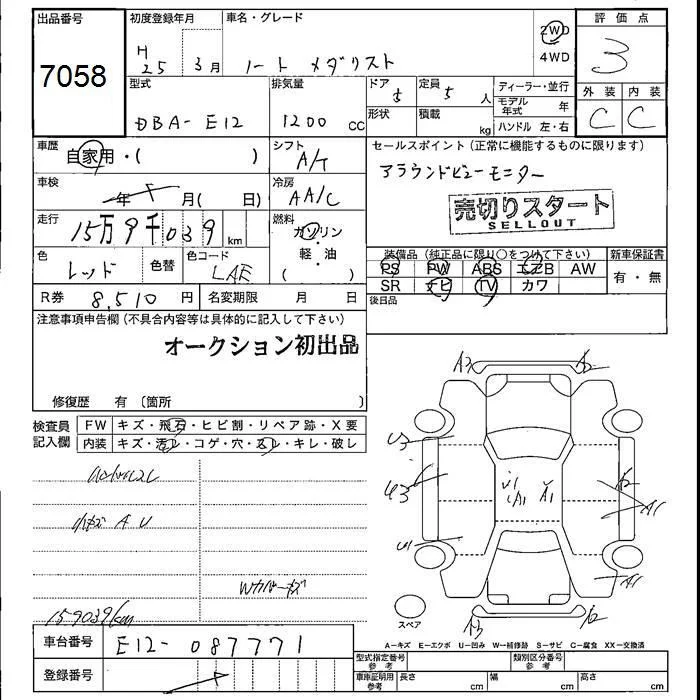 出品番号 初度登録年月 車名・グレード 評価点
7058 H 25 3月 ノート メダリスト 2WD 4WD 3
型式 排気量 ドア 5 定員 5人 ディーラー・並行 外装 内装
DBA-E12 1200cc 形状 積載 kg モデル年式 年 ハンドル 左・右 C C
車歴 自家用・( ) シフト A/T セールスポイント(正常に機能するものに限ります)
車検 年 月( 日) 冷房 AA/C アラウンドビューモニター
売切りスタート
SELLOUT
走行 15万9千039km 燃料 ガソリン・軽・油 ( )
装備品(純正品に限り○をつけて下さい) 新車保証書
色 レッド 色替 色コード LAE PS PW ABS エアB AW 有・無
SR ナビ TV カワ
R券 8,510円 名変期限 月 日 後日品
注意事項申告欄(不具合内容等は具体的に記入して下さい)
オークション初出品
修復歴 有(箇所 )
検査員記入欄 FW キズ・飛石・ヒビ割・リペア跡・X要
内装 キズ・汚レ・コゲ・穴・スレ・キレ・破レ
A3 A2
U3
U3 A2
U1 A1 A1 A1
小キズ A U
U1
Wカバーキズ A1
159039km スペア A3 A2
A-キズ E-エクボ U-凹み W-補修跡 S-サビ C-腐食 XX-交換済
車台番号 E12-087771
型式指定番号 参考 類別区分番号 参考
登録番号 車庫証明用 参考 長さ cm 幅 cm 高さ cm